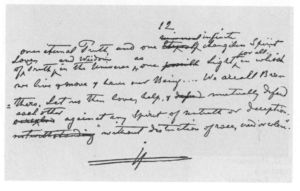 12.
universal infinite
one eternal Truth, and one changeless Spirit
Love, and Wisdom as for all,
of truth, in the Universe & one Light, in which
we live & move & have our Being.... We are all Bro-
thers. Let us then love, help, & mutually defend
each other against any Spirit of untruth or deception,
without distinction of race, creed or color.